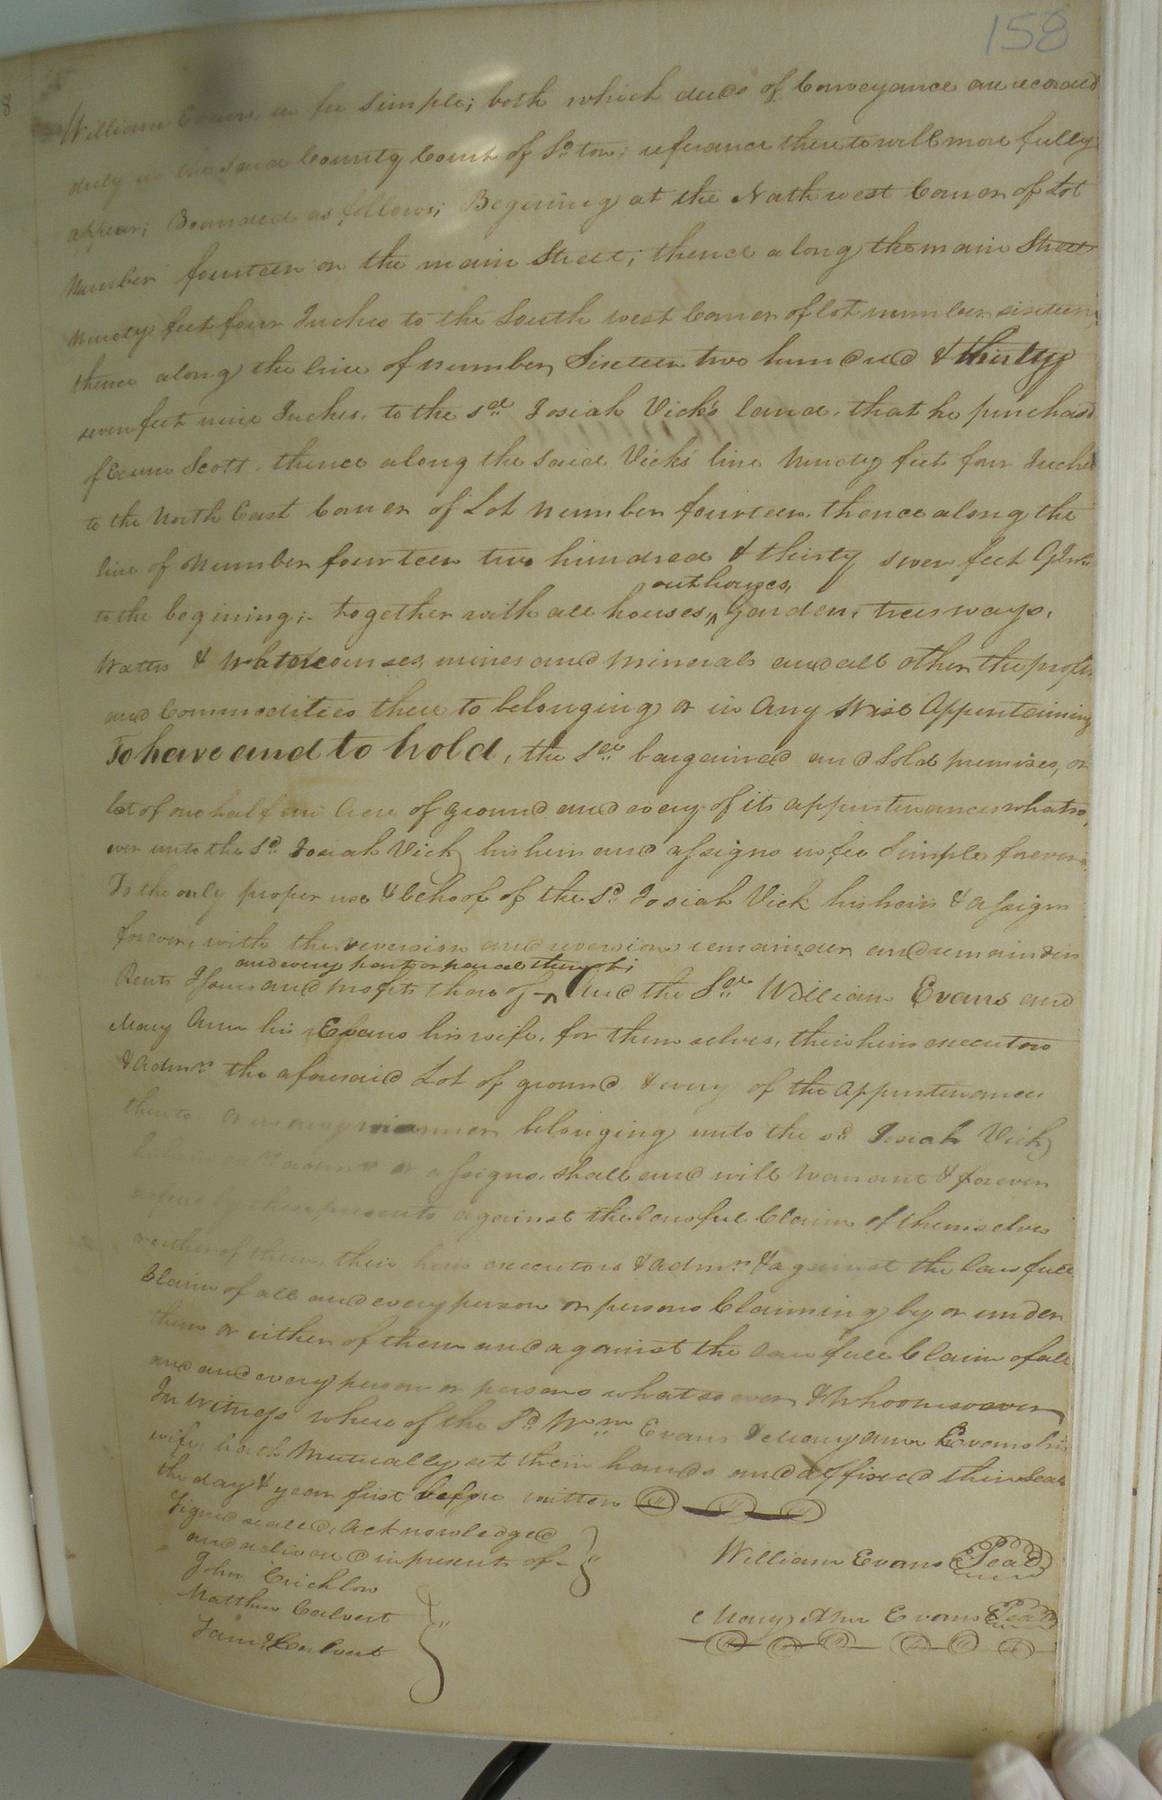 158
8
William Evans, in fee Simple; both which deeds of Conveyance are recorded
duly in the said County Court of So. ton; referance thereto will more fully
appear; Bounded as follows; Begining at the North west Corner of Lot
Number fourteen on the main Street; thence along the main Street
Ninety feet four Inches to the South west Corner of lot number sixteen;
thence along the line of number Sixteen two hundred & thirty
seven feet nine Inches. to the sd. Josiah Vick's land. that he purchasd
of Scott. thence along the said Vicks' line Ninety feet four Inches
to the North East Corner of Lot number fourteen. thence along the
line of Number fourteen two hundred & thirty seven feet 9 In
to the begining; together with all houses, ^ garden, trees ways,
outhouses,
Watters & Watercourses, mines and Minerals and all other the profits
and Commodities there to belonging or in Any Wise Appurtaining
To have and to hold, the sd. bargained and Sold premises, or
lot of one half an Acre of ground and every of its appurtenances whatso,
ever unto the Sd. Josiah Vick his heirs and assigns in fee Simple forever;
To the only proper use & behoof of the Sd. Josiah Vick his heirs & assigns
forever, with the reversion and reversions remainder and remainders
and every part or parcel thereof;
Rents Issues and profits thereof ^ And the Sd. William Evans and
Mary Ann his Evans his wife, for themselves, their heirs executors
& Admrs. the aforesaid Lot of ground & every of the Appurtenances
thereto or in any manner belonging unto the sd. Josiah Vick
or assigns, shall and will Warrant & forever
defend by these presents against the lawful Claim of themselves
or either of them, their heirs executors & admrs. & against the lawfull
Claim of all and every person or persons Claiming by or under
them or either of them and against the lawfull Claim of all
and and every person or persons whatsoever & Whoomsoever
In witness where of the Sd. Wm. Evans & Mary Ann Evans his
wife, hath Mutually set their hands and affixed their Seals
the day & year first before written
Signed sealed, Acknowledged
and delivered in presents of
John Crichlow
Matthew Calvert
Calvert
William Evans Seal
Mary Ann Evans Seal